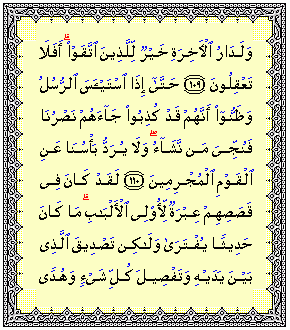 وَلَدَارُ ٱلْأَخِرَةِ خَيْرٌ لِّلَّذِينَ ٱتَّقَوْا۟ ۗ أَفَلَا
تَعْقِلُونَ ﴿١٠٩﴾ حَتَّىٰٓ إِذَا ٱسْتَيْـَٔسَ ٱلرُّسُلُ
وَظَنُّوٓا۟ أَنَّهُمْ قَدْ كُذِبُوا۟ جَآءَهُمْ نَصْرُنَا
فَنُجِّىَ مَن نَّشَآءُ ۖ وَلَا يُرَدُّ بَأْسُنَا عَنِ
ٱلْقَوْمِ ٱلْمُجْرِمِينَ ﴿١١٠﴾ لَقَدْ كَانَ فِى
قَصَصِهِمْ عِبْرَةٌ لِّأُو۟لِى ٱلْأَلْبَـٰبِ ۗ مَا كَانَ
حَدِيثًا يُفْتَرَىٰ وَلَـٰكِن تَصْدِيقَ ٱلَّذِى
بَيْنَ يَدَيْهِ وَتَفْصِيلَ كُلِّ شَىْءٍ وَهُدًى